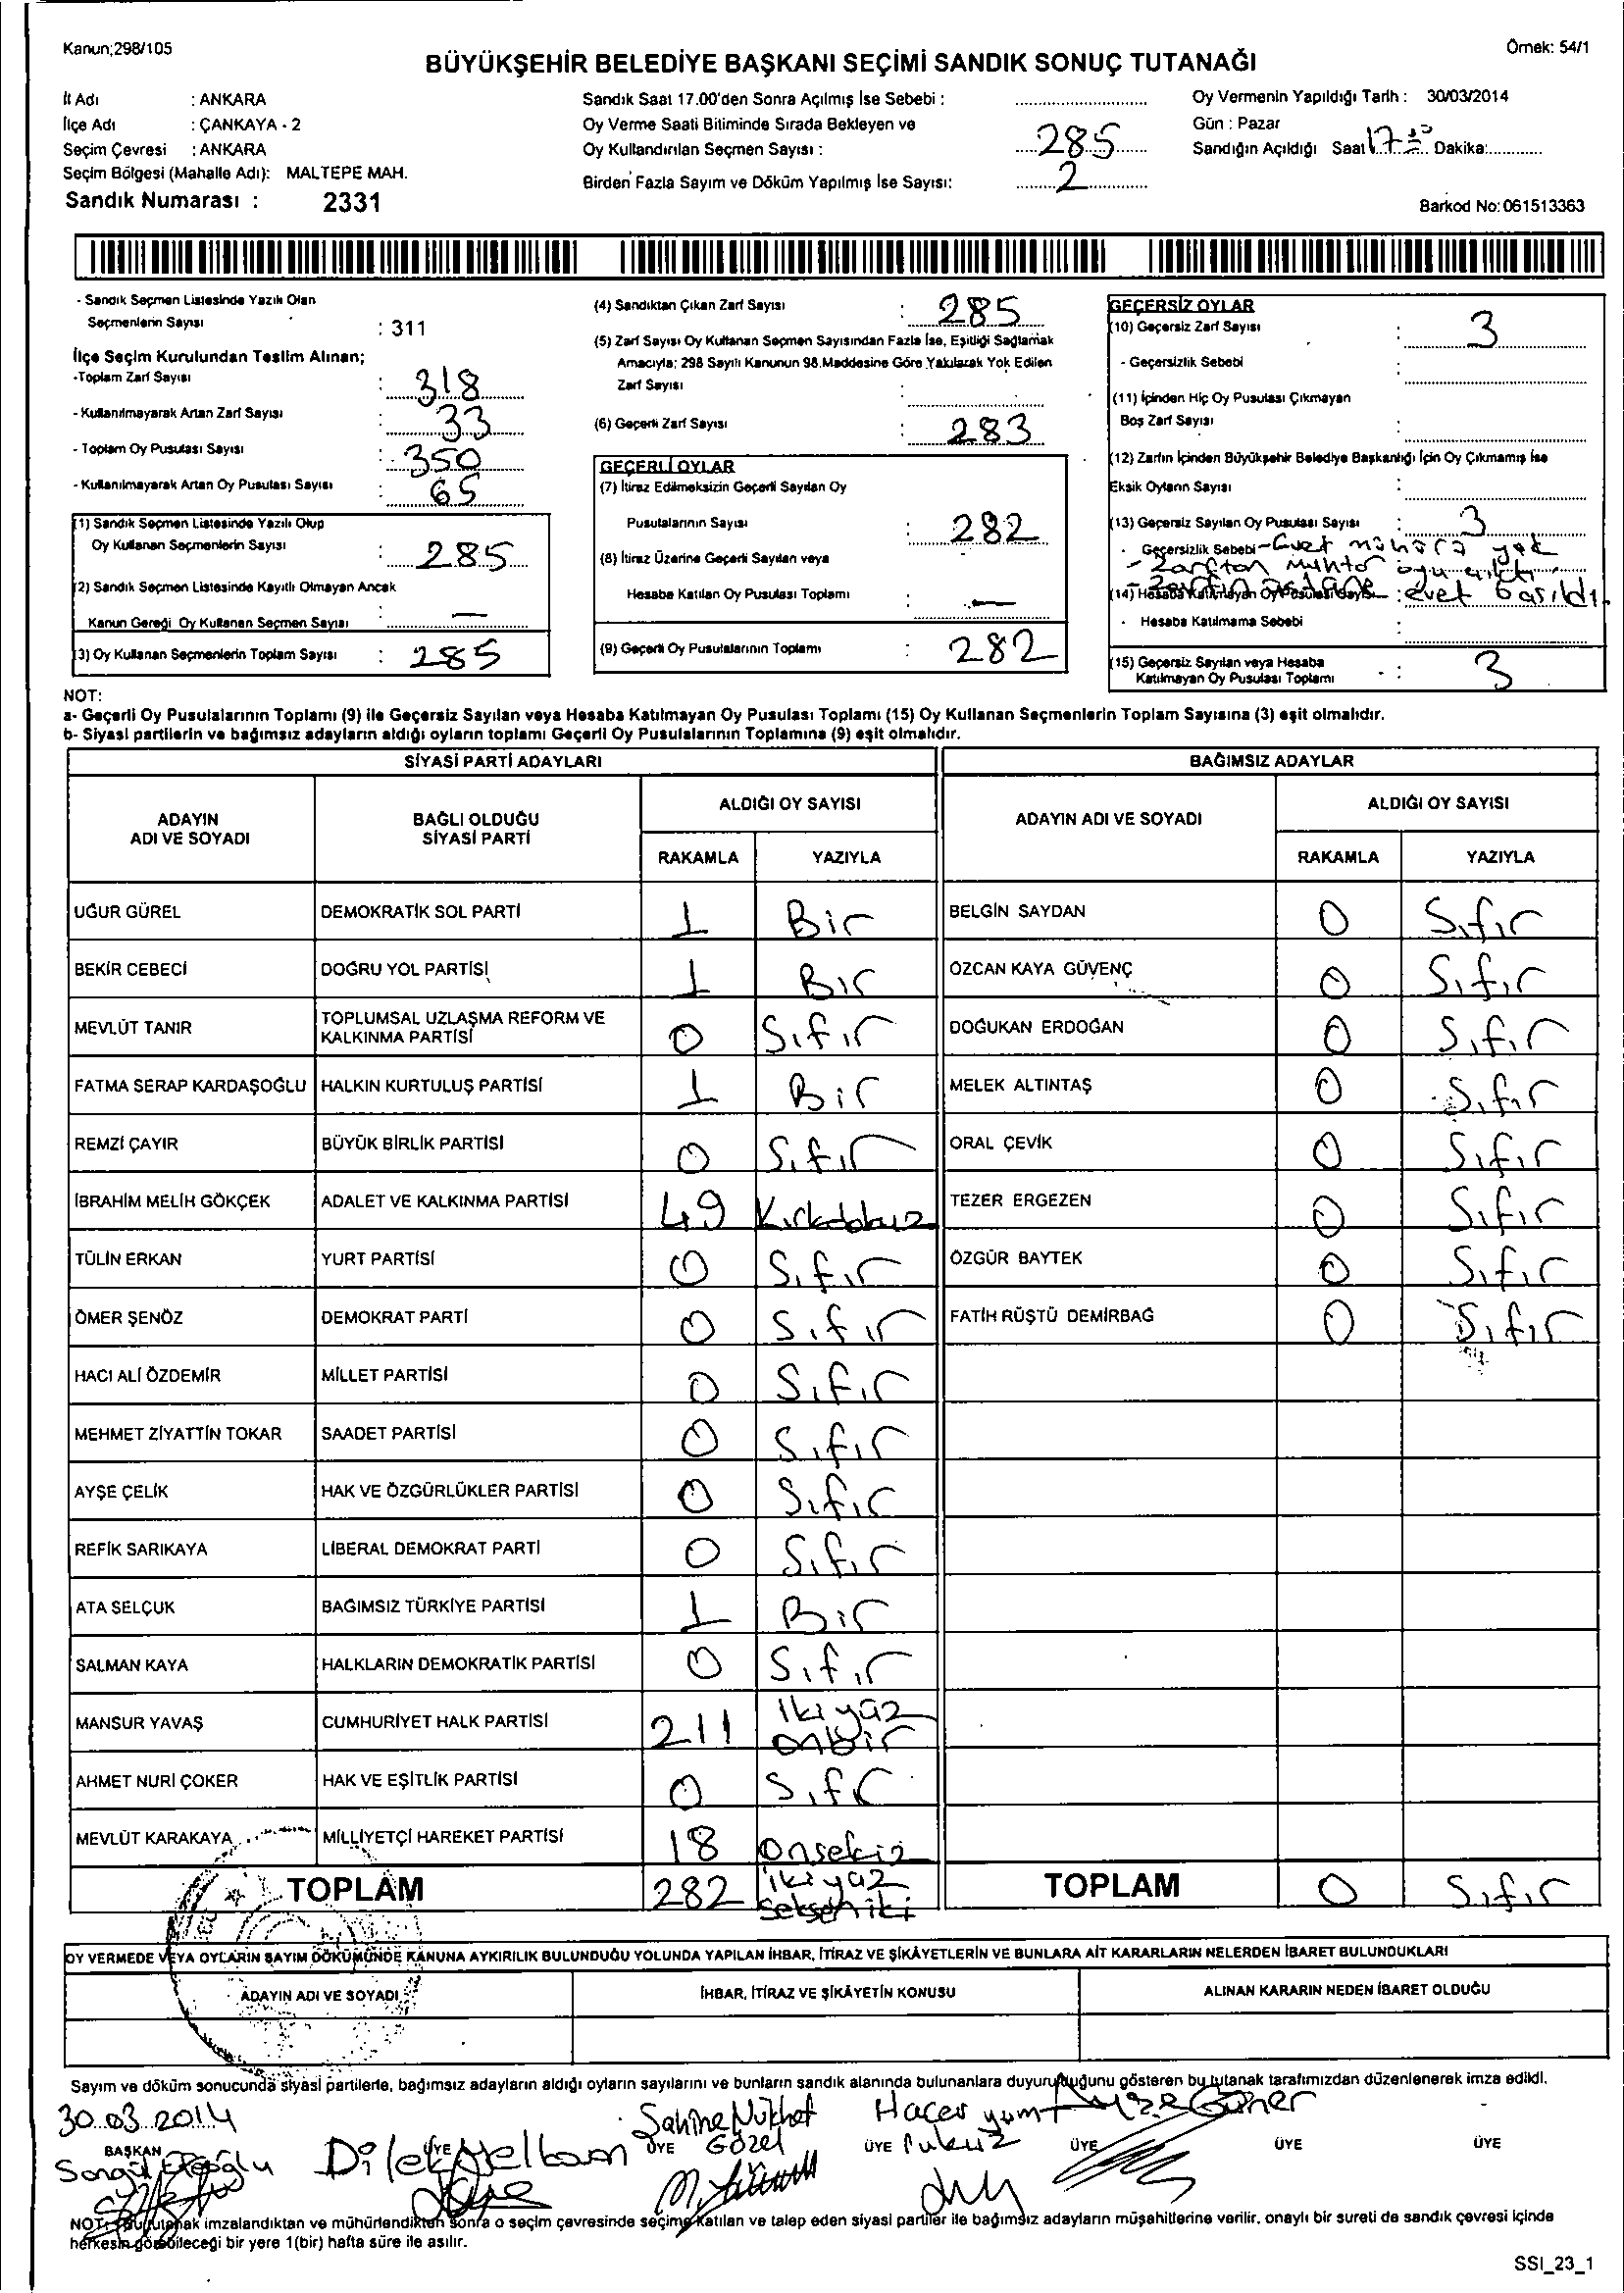 Kanun;298/105
Örnek: 54/1
BÜYÜKŞEHİR BELEDİYE BAŞKANI SEÇİMİ SANDIK SONUÇ TUTANAĞI
İl Adı : ANKARA
İlçe Adı : ÇANKAYA - 2
Seçim Çevresi : ANKARA
Seçim Bölgesi (Mahalle Adı): MALTEPE MAH.
Sandık Numarası : 2331
Sandık Saat 17.00'den Sonra Açılmış İse Sebebi :
Oy Verme Saati Bitiminde Sırada Bekleyen ve
Oy Kullandırılan Seçmen Sayısı : 285
Birden Fazla Sayım ve Döküm Yapılmış İse Sayısı: 2
Oy Vermenin Yapıldığı Tarih : 30/03/2014
Gün : Pazar
Sandığın Açıldığı Saat 17 Dakika:
Barkod No: 061513363
- Sandık Seçmen Listesinde Yazılı Olan
Seçmenlerin Sayısı : 311
İlçe Seçim Kurulundan Teslim Alınan;
-Toplam Zarf Sayısı : 318
- Kullanılmayarak Artan Zarf Sayısı : 33
- Toplam Oy Pusulası Sayısı : 350
- Kullanılmayarak Artan Oy Pusulası Sayısı : 65
(1) Sandık Seçmen Listesinde Yazılı Olup
Oy Kullanan Seçmenlerin Sayısı : 285
(2) Sandık Seçmen Listesinde Kayıtlı Olmayan Ancak
Kanun Gereği Oy Kullanan Seçmen Sayısı : —
(3) Oy Kullanan Seçmenlerin Toplam Sayısı : 285
(4) Sandıktan Çıkan Zarf Sayısı : 285
(5) Zarf Sayısı Oy Kullanan Seçmen Sayısından Fazla İse, Eşitliği Sağlamak
Amacıyla; 298 Sayılı Kanunun 98.Maddesine Göre Yakılarak Yok Edilen
Zarf Sayısı :
(6) Geçerli Zarf Sayısı : 283
GEÇERLİ OYLAR
(7) İtiraz Edilmeksizin Geçerli Sayılan Oy
Pusulalarının Sayısı : 282
(8) İtiraz Üzerine Geçerli Sayılan veya
Hesaba Katılan Oy Pusulası Toplamı : —
(9) Geçerli Oy Pusulalarının Toplamı : 282
GEÇERSİZ OYLAR
(10) Geçersiz Zarf Sayısı : 3
- Geçersizlik Sebebi :
(11) İçinden Hiç Oy Pusulası Çıkmayan
Boş Zarf Sayısı :
(12) Zarfın İçinden Büyükşehir Belediye Başkanlığı İçin Oy Çıkmamış İse
Eksik Oyların Sayısı :
(13) Geçersiz Sayılan Oy Pusulası Sayısı : 3
- Geçersizlik Sebebi - Evet mührü yok
- Zarftan muhtar oyu çıktı
(14) Hesaba Katılmayan Oy Pusulası Sayısı : evet basıldı.
- Hesaba Katılmama Sebebi :
(15) Geçersiz Sayılan veya Hesaba
Katılmayan Oy Pusulası Toplamı : 3
NOT:
a- Geçerli Oy Pusulalarının Toplamı (9) ile Geçersiz Sayılan veya Hesaba Katılmayan Oy Pusulası Toplamı (15) Oy Kullanan Seçmenlerin Toplam Sayısına (3) eşit olmalıdır.
b- Siyasi partilerin ve bağımsız adayların aldığı oyların toplamı Geçerli Oy Pusulalarının Toplamına (9) eşit olmalıdır.
SİYASİ PARTİ ADAYLARI
ADAYIN ADI VE SOYADI BAĞLI OLDUĞU SİYASİ PARTİ ALDIĞI OY SAYISI
RAKAMLA YAZIYLA
UĞUR GÜREL DEMOKRATİK SOL PARTİ 1 Bir
BEKİR CEBECİ DOĞRU YOL PARTİSİ 1 Bir
MEVLÜT TANIR TOPLUMSAL UZLAŞMA REFORM VE KALKINMA PARTİSİ 0 Sıfır
FATMA SERAP KARDAŞOĞLU HALKIN KURTULUŞ PARTİSİ 1 Bir
REMZİ ÇAYIR BÜYÜK BİRLİK PARTİSİ 0 Sıfır
İBRAHİM MELİH GÖKÇEK ADALET VE KALKINMA PARTİSİ 49 Kırkdokuz
TÜLİN ERKAN YURT PARTİSİ 0 Sıfır
ÖMER ŞENÖZ DEMOKRAT PARTİ 0 Sıfır
HACI ALİ ÖZDEMİR MİLLET PARTİSİ 0 Sıfır
MEHMET ZİYATTİN TOKAR SAADET PARTİSİ 0 Sıfır
AYŞE ÇELİK HAK VE ÖZGÜRLÜKLER PARTİSİ 0 Sıfır
REFİK SARIKAYA LİBERAL DEMOKRAT PARTİ 0 Sıfır
ATA SELÇUK BAĞIMSIZ TÜRKİYE PARTİSİ 1 Bir
SALMAN KAYA HALKLARIN DEMOKRATİK PARTİSİ 0 Sıfır
MANSUR YAVAŞ CUMHURİYET HALK PARTİSİ 211 ikiyüz onbir
AHMET NURİ ÇOKER HAK VE EŞİTLİK PARTİSİ 0 Sıfr
MEVLÜT KARAKAYA MİLLİYETÇİ HAREKET PARTİSİ 18 Onsekiz
TOPLAM 282 ikiyüz seksen iki
BAĞIMSIZ ADAYLAR
ADAYIN ADI VE SOYADI ALDIĞI OY SAYISI
RAKAMLA YAZIYLA
BELGİN SAYDAN 0 Sıfır
ÖZCAN KAYA GÜVENÇ 0 Sıfır
DOĞUKAN ERDOĞAN 0 Sıfır
MELEK ALTINTAŞ 0 Sıfır
ORAL ÇEVİK 0 Sıfır
TEZER ERGEZEN 0 Sıfır
ÖZGÜR BAYTEK 0 Sıfır
FATİH RÜŞTÜ DEMİRBAĞ 0 Sıfır
TOPLAM 0 Sıfır
OY VERMEDE VEYA OYLARIN SAYIM DÖKÜMÜNDE KANUNA AYKIRILIK BULUNDUĞU YOLUNDA YAPILAN İHBAR, İTİRAZ VE ŞİKÂYETLERİN VE BUNLARA AİT KARARLARIN NELERDEN İBARET BULUNDUKLARI
ADAYIN ADI VE SOYADI İHBAR, İTİRAZ VE ŞİKÂYETİN KONUSU ALINAN KARARIN NEDEN İBARET OLDUĞU
Sayım ve döküm sonucunda siyasi partilerle, bağımsız adayların aldığı oyların sayılarını ve bunların sandık alanında bulunanlara duyurulduğunu gösteren bu tutanak tarafımızdan düzenlenerek imza edildi.
30.03.2014
BAŞKAN ÜYE ÜYE ÜYE ÜYE ÜYE ÜYE
Songül
Dilek
Gözel
Hacer
NOT: Bu tutanak imzalandıktan ve mühürlendikten sonra o seçim çevresinde seçime katılan ve talep eden siyasi partiler ile bağımsız adayların müşahitlerine verilir, onaylı bir sureti de sandık çevresi içinde
herkesin görebileceği bir yere 1(bir) hafta süre ile asılır.
SSI_23_1